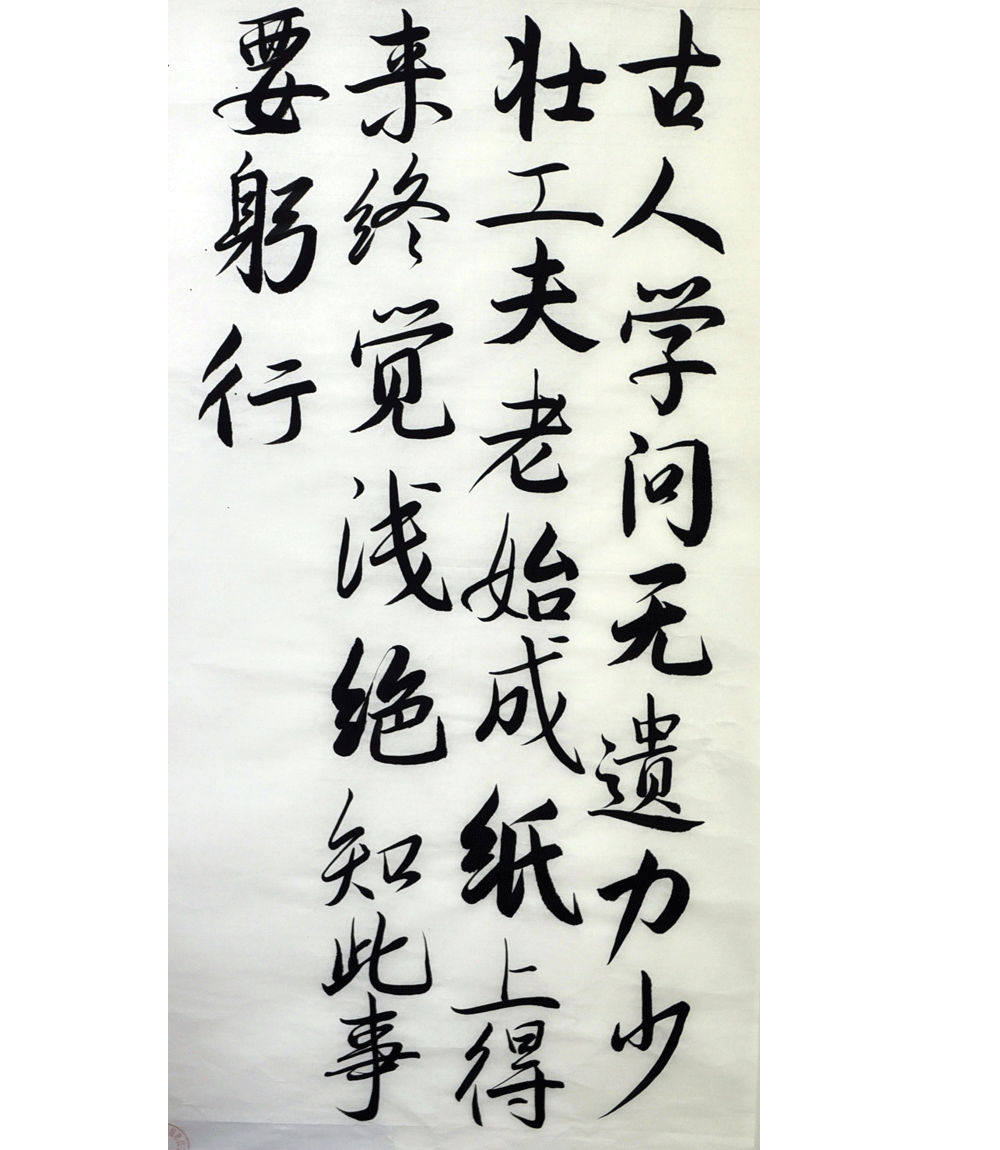 古人学问无遗力少
壮工夫老始成纸上得
来终觉浅绝知此事
要躬行